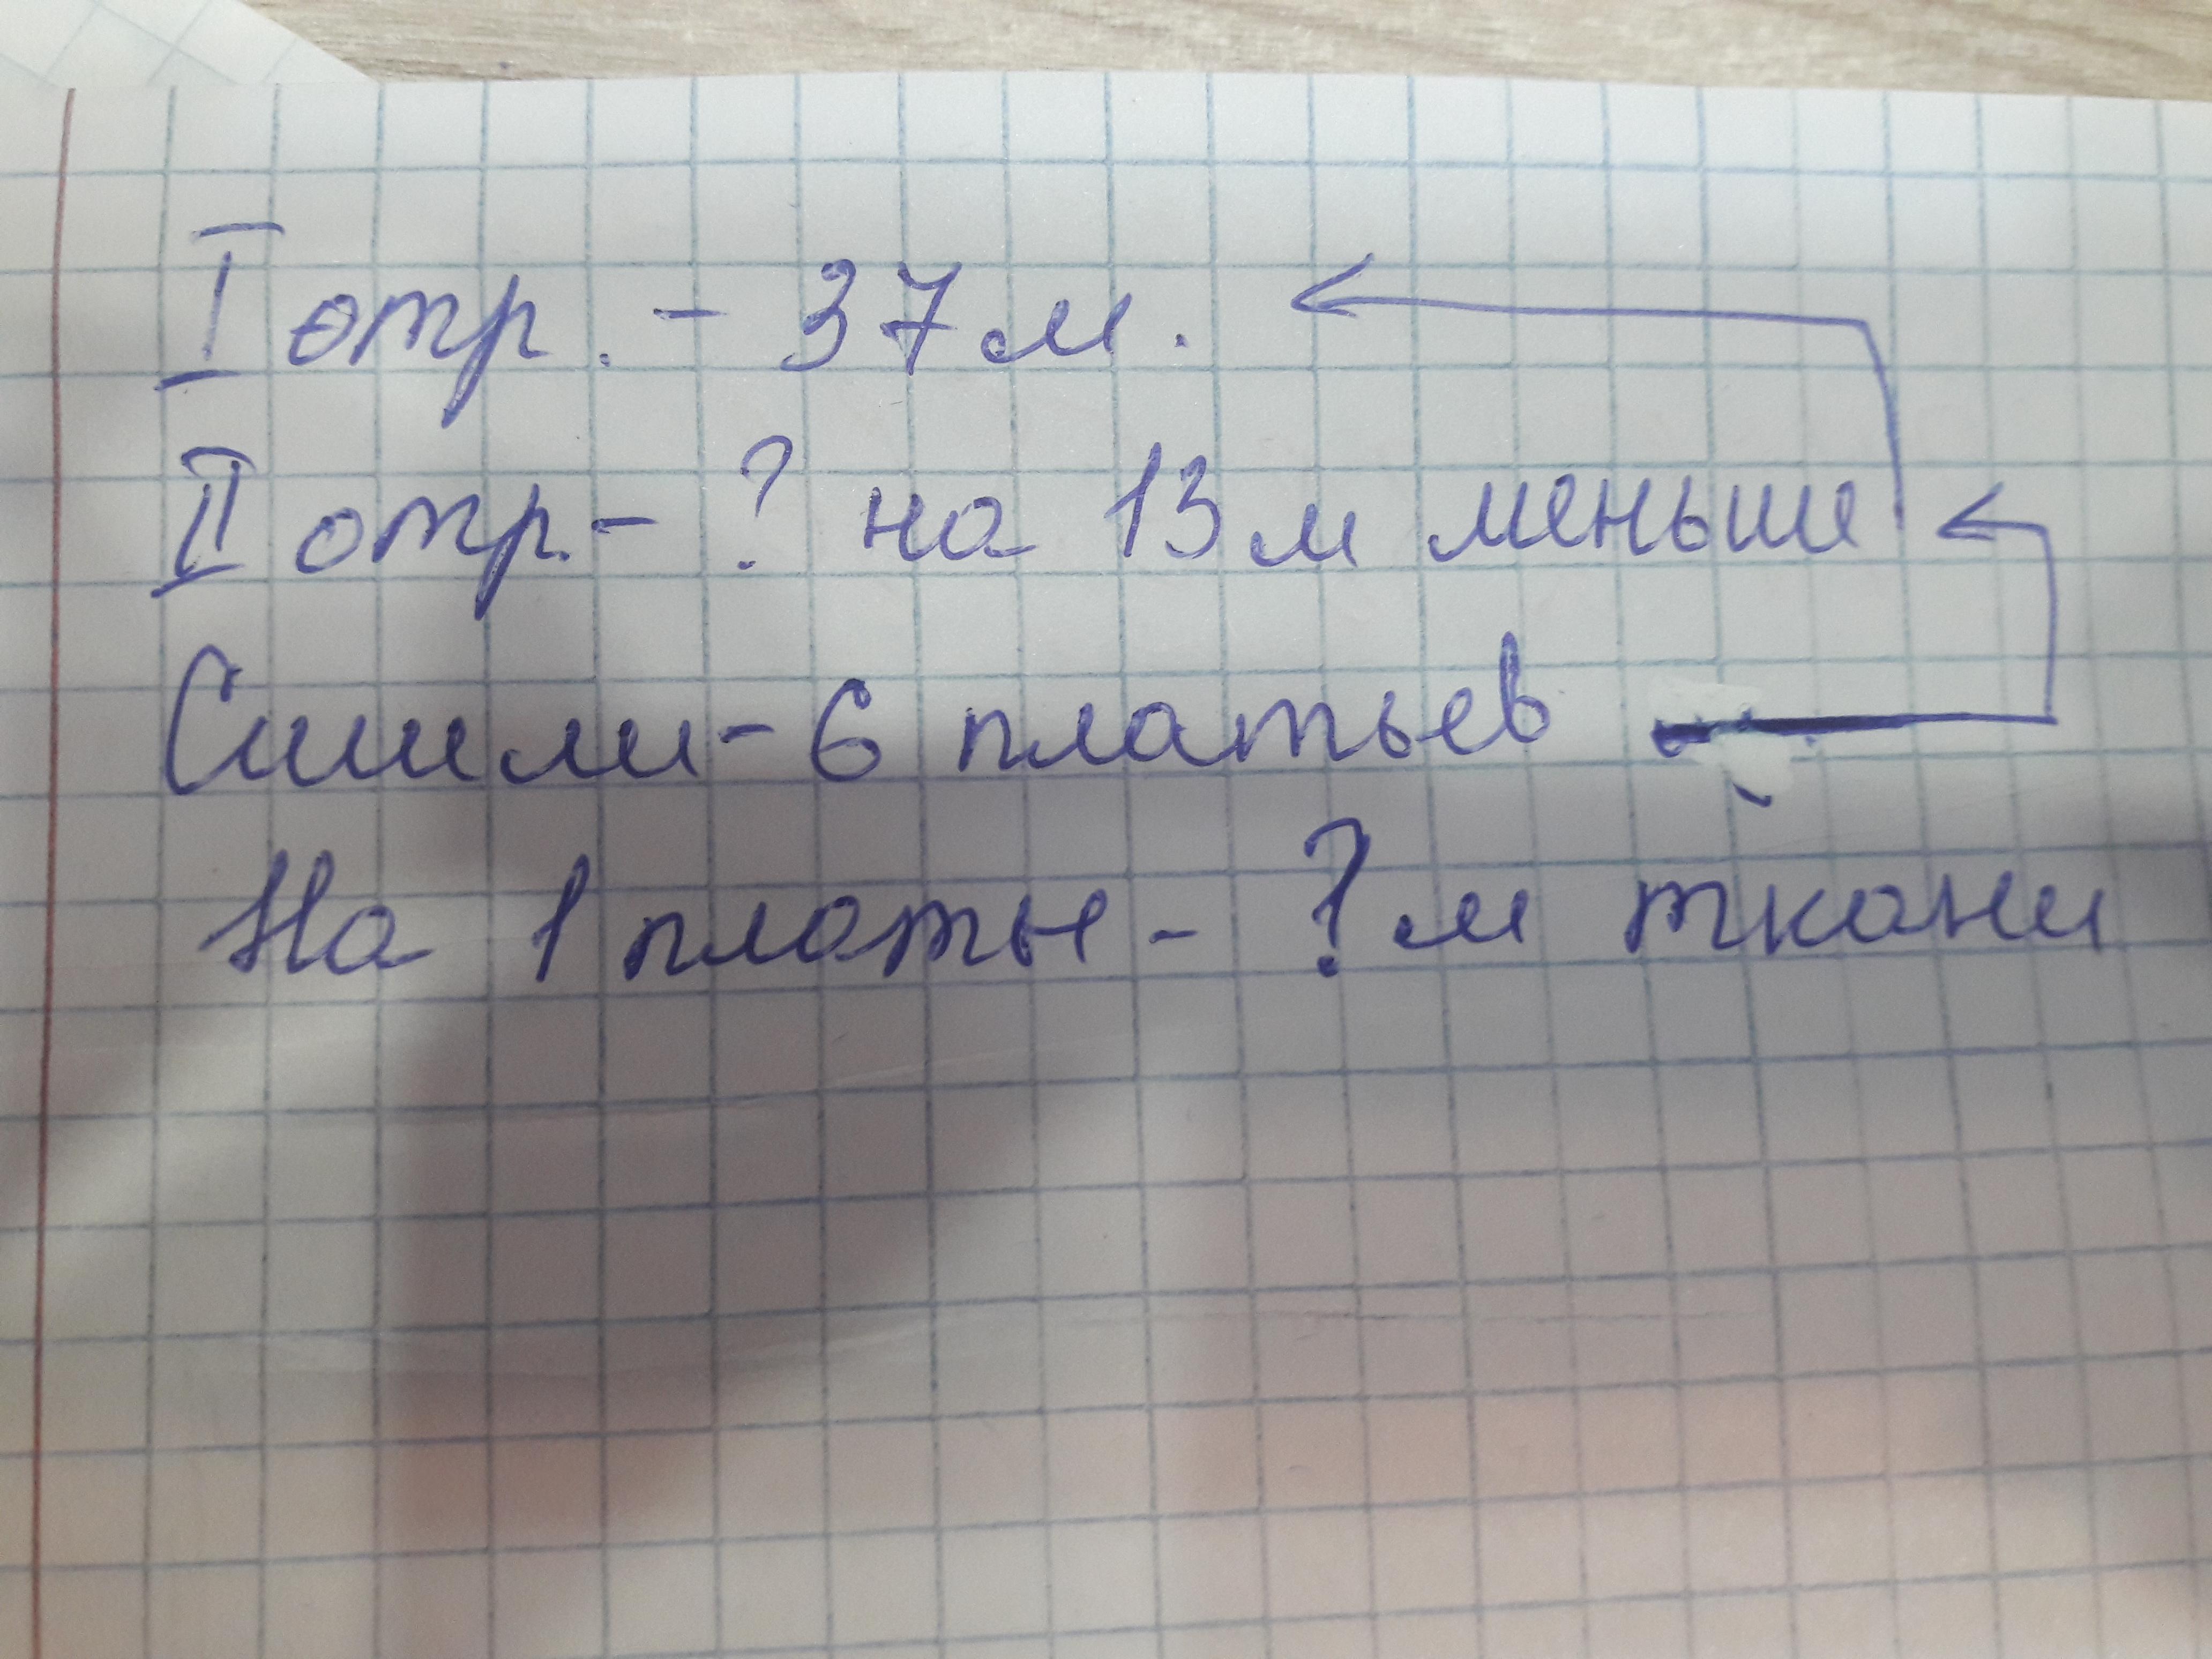 I отр. - 37 м.
II отр. - ? на 13 м меньше
Сшили - 6 платьев
На 1 платье - ? м ткани